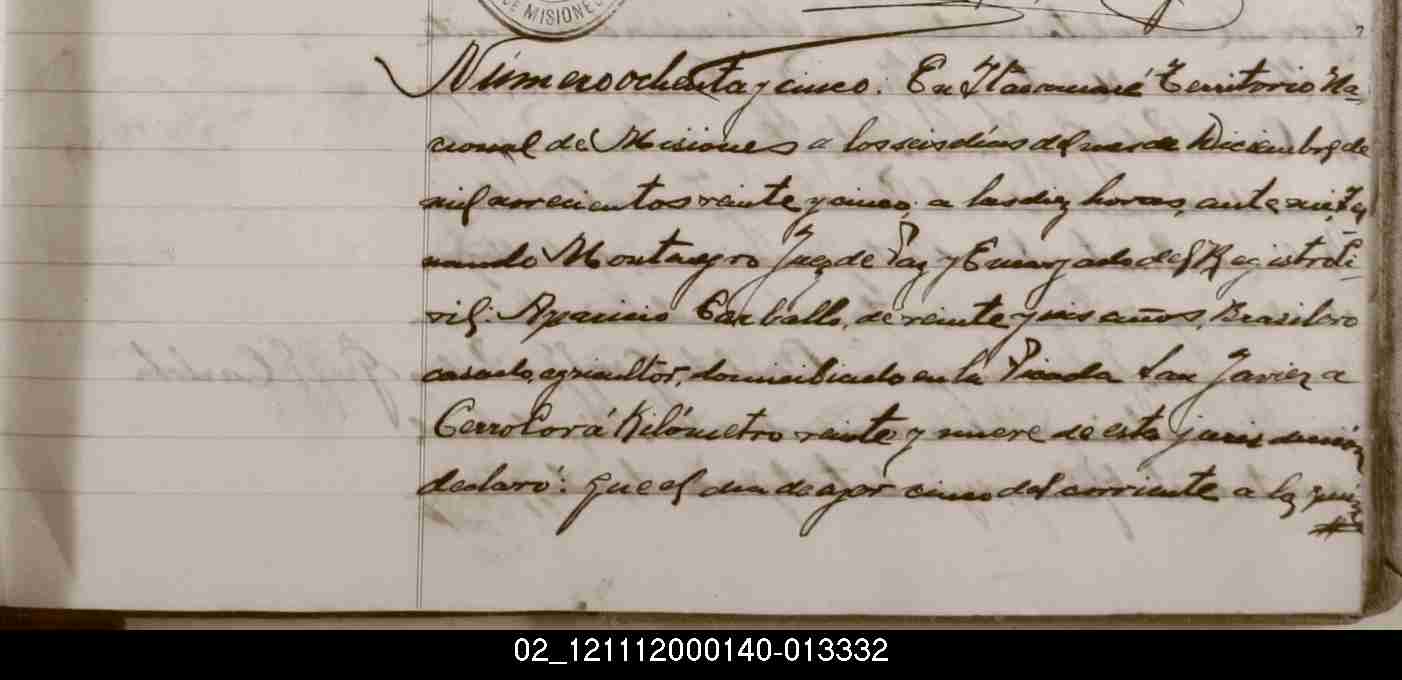 DE MISIONES
Número ochenta y cinco. En Itacaruaré Territorio Na-
cional de Misiones a los seis días del mes de Diciembre de
mil novecientos veinte y cinco, a las diez horas, ante mi,
Montenegro Juez de Paz y Encargado del Registro Ci-
vil: Aparicio Carballo, de veinte y seis años, Brasilero
casado, agricultor, domiciliado en la Picada San Javier a
Cerro Corá Kilómetro veinte y nueve de esta jurisdicción
declaró: Que el dia de ayer cinco del corriente a las quin
02_121112000140-013332